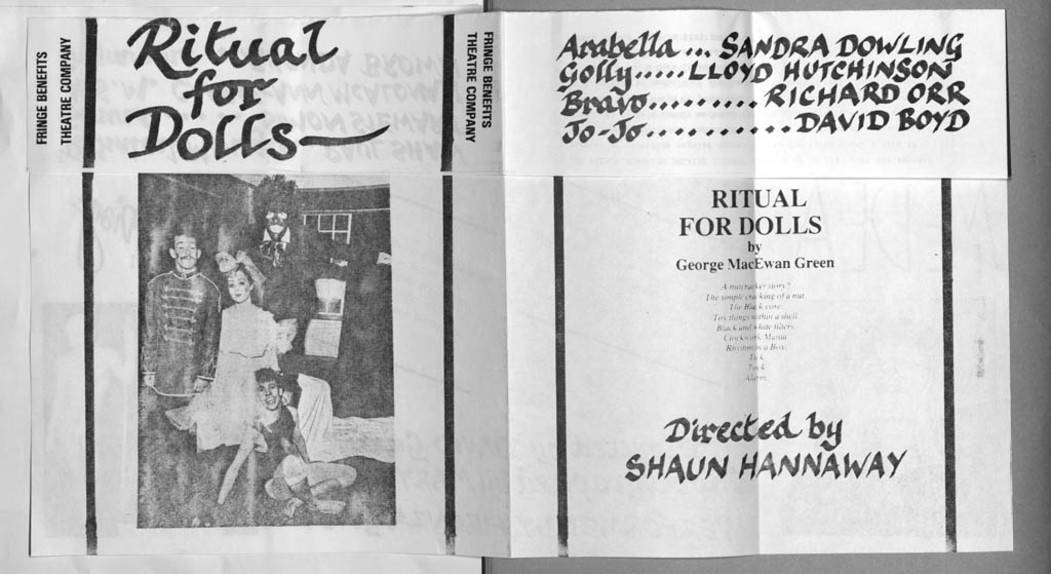 FRINGE BENEFITS
THEATRE COMPANY
Ritual
for
Dolls
FRINGE BENEFITS
THEATRE COMPANY
Arabella ... SANDRA DOWLING
Golly.....LLOYD HUTCHINSON
Bravo.........RICHARD ORR
Jo-Jo...........DAVID BOYD
RITUAL
FOR DOLLS
by
George MacEwan Green
A nutcracker story?
The simple cracking of a nut.
The Black core.
Toy things within a shell.
Black and white filters.
Clockwork Mania
Rhythm in a Box.
Tick
Tock
Alarm.
Directed by
SHAUN HANNAWAY